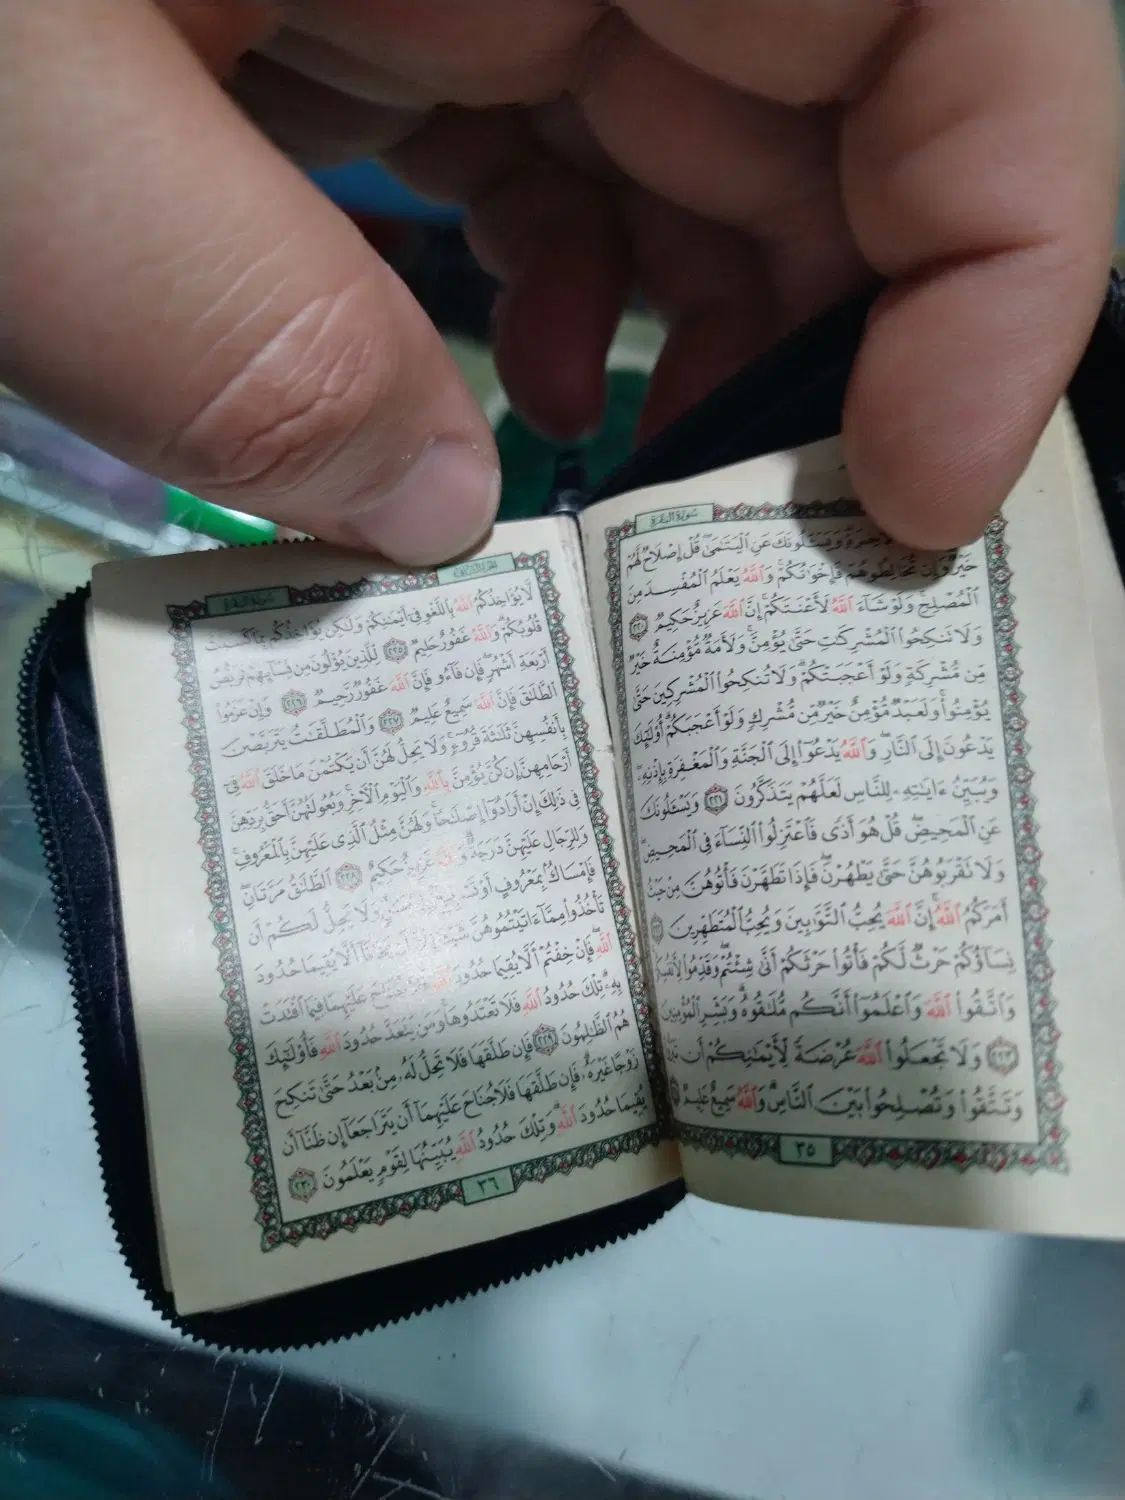 سورة البقرة
ويسـٔلونك عن اليتمى قل إصلاح لهم
خير وإن تخالطوهم فإخوانكم والله يعلم المفسد من
المصلح ولو شاء الله لأعنتكم إن الله عزيز حكيم ٢٢٠
ولا تنكحوا المشركت حتى يؤمن ولأمة مؤمنة خير
من مشركة ولو أعجبتكم ولا تنكحوا المشركين حتى
يؤمنوا ولعبد مؤمن خير من مشرك ولو أعجبكم أولئك
يدعون إلى النار والله يدعوا إلى الجنة والمغفرة بإذنه
ويبين ءايته للناس لعلهم يتذكرون ٢٢١ ويسـٔلونك
عن المحيض قل هو أذى فاعتزلوا النساء في المحيض
ولا تقربوهن حتى يطهرن فإذا تطهرن فأتوهن من حيث
أمركم الله إن الله يحب التوابين ويحب المتطهرين
نساؤكم حرث لكم فأتوا حرثكم أنى شئتم وقدموا لأنفسكم
واتقوا الله واعلموا أنكم ملقوه وبشر المؤمنين
٢٢٣ ولا تجعلوا الله عرضة لأيمنكم أن تبروا
وتتقوا وتصلحوا بين الناس والله سميع عليم
٣٥
سورة البقرة
لا يؤاخذكم الله باللغو في أيمنكم ولكن يؤاخذكم بما كسبت
قلوبكم والله غفور حليم ٢٢٥ للذين يؤلون من نسائهم تربص
أربعة أشهر فإن فاءو فإن الله غفور رحيم ٢٢٦ وإن عزموا
الطلق فإن الله سميع عليم ٢٢٧ والمطلقت يتربصن
بأنفسهن ثلثة قروء ولا يحل لهن أن يكتمن ما خلق الله في
أرحامهن إن كن يؤمن بالله واليوم الآخر وبعولتهن أحق بردهن
في ذلك إن أرادوا إصلحا ولهن مثل الذي عليهن بالمعروف
وللرجال عليهن درجة والله عزيز حكيم ٢٢٨ الطلق مرتان
فإمساك بمعروف أو تسريح بإحسن ولا يحل لكم أن
تأخذوا مما ءاتيتموهن شيـٔا إلا أن يخافا ألا يقيما حدود
الله فإن خفتم ألا يقيما حدود الله فلا جناح عليهما فيما افتدت
به تلك حدود الله فلا تعتدوها ومن يتعد حدود الله فأولئك
هم الظلمون ٢٢٩ فإن طلقها فلا تحل له من بعد حتى تنكح
زوجا غيره فإن طلقها فلا جناح عليهما أن يتراجعا إن ظنا أن
يقيما حدود الله وتلك حدود الله يبينها لقوم يعلمون ٢٣٠
٣٦